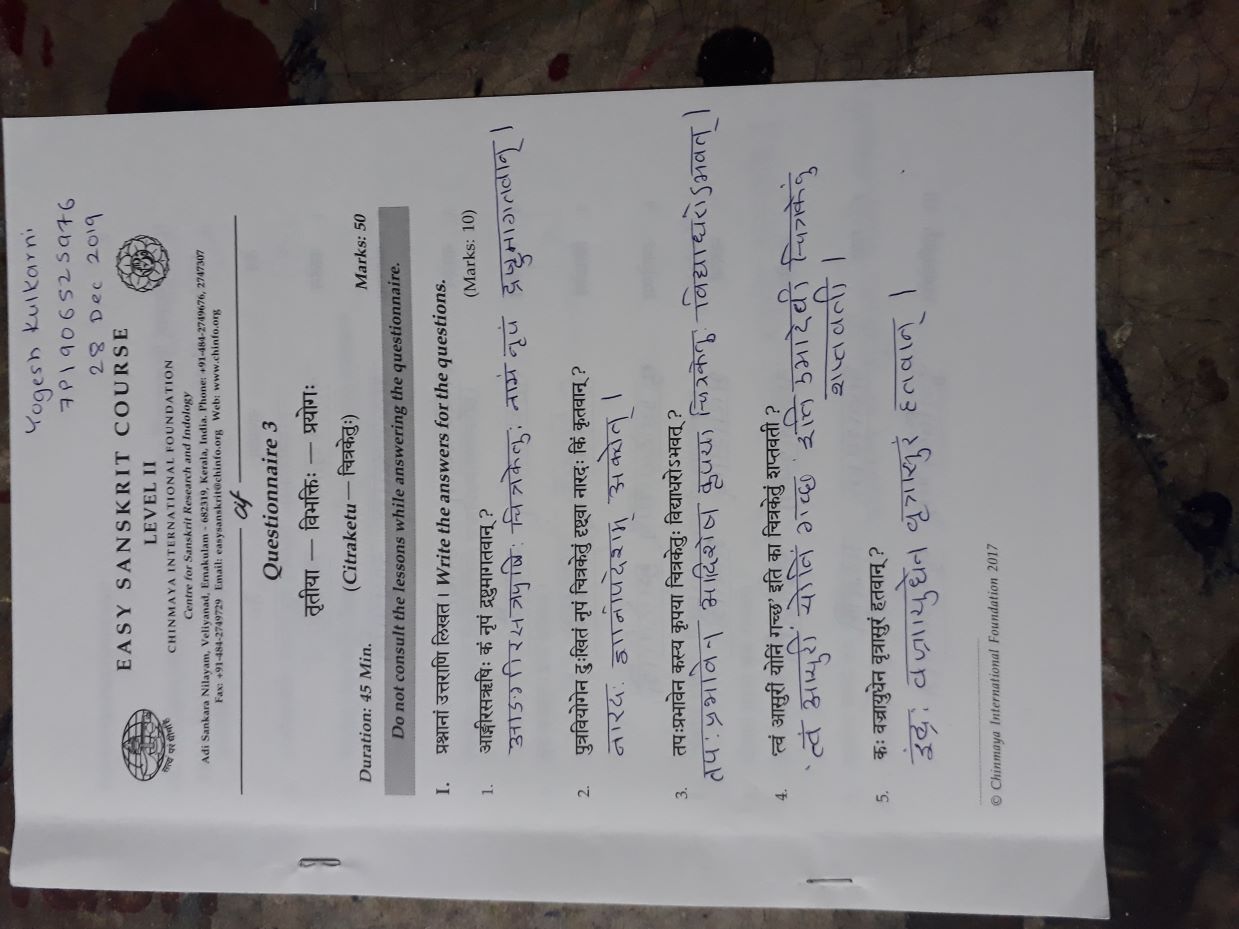 Yogesh Kulkarni
7P1906525976
28 Dec 2019
EASY SANSKRIT COURSE
LEVEL II
CHINMAYA INTERNATIONAL FOUNDATION
Centre for Sanskrit Research and Indology
Adi Sankara Nilayam, Veliyanad, Ernakulam - 682319, Kerala, India. Phone: +91-484-2749676, 2747307
Fax: +91-484-2749729 Email: easysanskrit@chinfo.org Web: www.chinfo.org
cif
Questionnaire 3
तृतीया — विभक्तिः — प्रयोगः
(Citraketu — चित्रकेतुः)
Duration: 45 Min. Marks: 50
Do not consult the lessons while answering the questionnaire.
I. प्रश्नानां उत्तराणि लिखत । Write the answers for the questions.
(Marks: 10)
1. आङ्गीरसऋषिः कं नृपं द्रष्टुमागतवान् ?
आङगीरसऋषिः चित्रकेतुः नामं नृपं द्रष्टुमागतवान् ।
2. पुत्रवियोगेन दुःखितं नृपं चित्रकेतुं दृष्ट्वा नारदः किं कृतवान् ?
नारदः ज्ञानोपदेशम् अकरोत् ।
3. तपःप्रभावेन कस्य कृपया चित्रकेतुः विद्याधरोऽभवत् ?
तपःप्रभावेन आदिशेष कृपया चित्रकेतुः विद्याधरोऽभवत् ।
4. 'त्वं आसुरीं योनिं गच्छ' इति का चित्रकेतुं शप्तवती ?
'त्वं आसुरीं योनिं गच्छ' इति उमादेवी चित्रकेतुं
शप्तवती ।
5. कः वज्रायुधेन वृत्रासुरं हतवान् ?
इंद्रः वज्रायुधेन वृत्रासुरं हतवान् ।
© Chinmaya International Foundation 2017